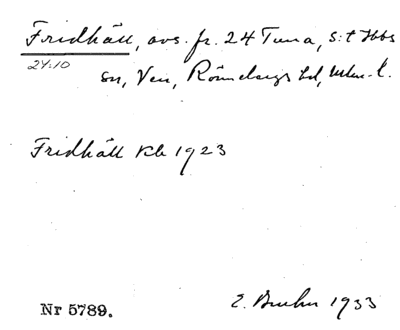 Fridhäll, avs. fr. 24 Tuna, S:t Ibbs
24:10
sn, Ven, Rönnebergs hd, Mlm. l.
Fridhäll Kb 1923
Nr 5789.
1933